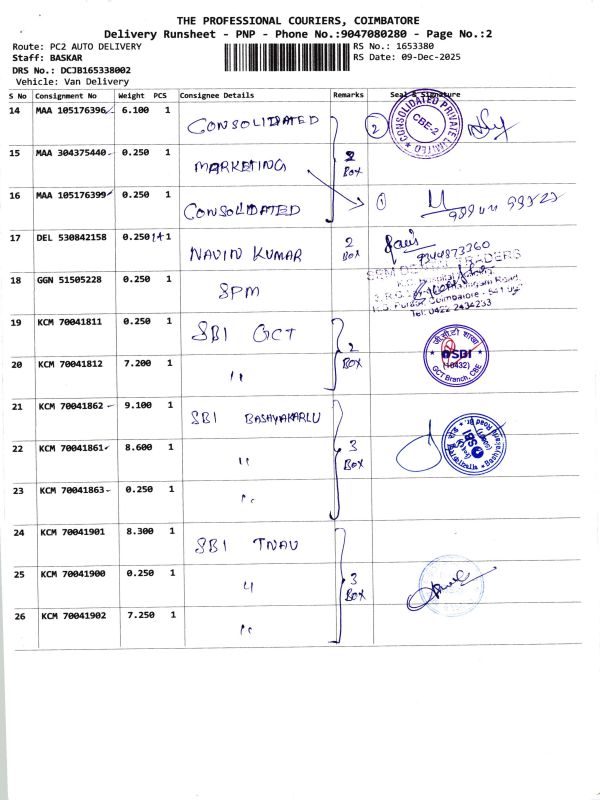 THE PROFESSIONAL COURIERS, COIMBATORE
Delivery Runsheet - PNP - Phone No.:9047080280 - Page No.:2
Route: PC2 AUTO DELIVERY RS No.: 1653380
Staff: BASKAR RS Date: 09-Dec-2025
DRS No.: DCJB165338002
Vehicle: Van Delivery
S No Consignment No Weight PCS Consignee Details Remarks Seal & Signature
14 MAA 105176396 6.100 1 CONSOLIDATED 2 CONSOLIDATED PRIVATE LIMITED CBE-2
15 MAA 304375440 0.250 1 MARKETING 2 BOX
16 MAA 105176399 0.250 1 CONSOLIDATED 1
17 DEL 530842158 0.250 1+1 1 NAVIN KUMAR 2 BOX 9344873260
18 GGN 51505228 0.250 1 SPM TRADERS
Road
Coimbatore
Tel: 0422 2434233
19 KCM 70041811 0.250 1 SBI GCT
20 KCM 70041812 7.200 1 " 2 BOX जी.सी.टी शाखा SBI (16432) GCT Branch, CBE
21 KCM 70041862 9.100 1 SBI BASAYAKARLU
22 KCM 70041861 8.600 1 " 3 BOX SBI
23 KCM 70041863 0.250 1 "
24 KCM 70041901 8.300 1 SBI TNAU
25 KCM 70041900 0.250 1 " 3 BOX
26 KCM 70041902 7.250 1 "